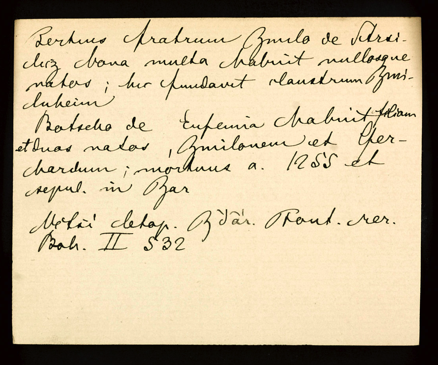 Tertius fratrum Smilo de Strsi-
luz bona multa habuit nullosque
natos; hic fundavit claustrum Smi-
lnheim
Botscho de Eufemia habuit filiam
et duos natos, Smilonem et Ger-
hardum; mortuus a. 1255 et
sepul. in Bar
Menší letop. Žďár. Font. rer.
Boh. II 532